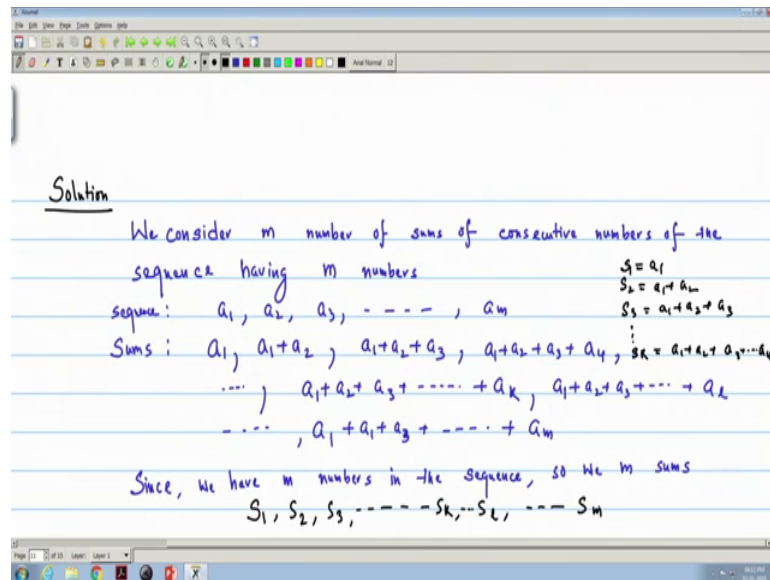 Journal
File Edit View Page Tools Options Help
Arial Normal 12
Solution
We consider m number of sums of consecutive numbers of the
sequence having m numbers
S1 = a1
S2 = a1 + a2
sequence: a1, a2, a3, ----, am
S3 = a1 + a2 + a3
⋮
Sums : a1, a1+a2, a1+a2+a3, a1+a2+a3+a4,
SK = a1+a2+a3+...
...., a1+a2+a3+-----+aK, a1+a2+a3+---+al
----, a1+a1+a3+----+am
Since, we have m numbers in the sequence, so we m sums
S1, S2, S3, ------SK,--Sl, --- Sm
Page 11 of 15 Layer: Layer 1